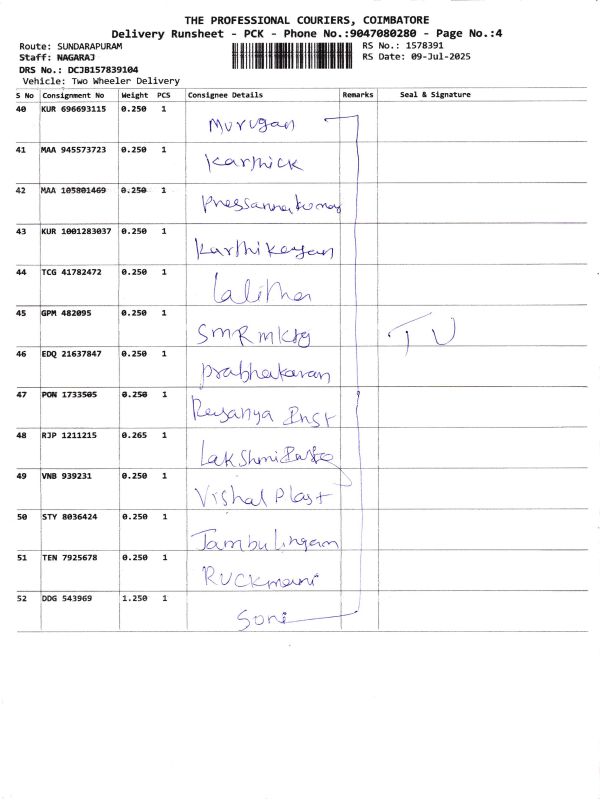 THE PROFESSIONAL COURIERS, COIMBATORE
Delivery Runsheet - PCK - Phone No.:9047080280 - Page No.:4
Route: SUNDARAPURAM
RS No.: 1578391
Staff: NAGARAJ
RS Date: 09-Jul-2025
DRS No.: DCJB157839104
Vehicle: Two Wheeler Delivery
S No Consignment No Weight PCS Consignee Details Remarks Seal & Signature
40 KUR 696693115 0.250 1 Murugan
41 MAA 945573723 0.250 1 Karthick
42 MAA 105801469 0.250 1
43 KUR 1001283037 0.250 1 Karthikeyan
44 TCG 41782472 0.250 1 Lalitha
45 GPM 482095 0.250 1 SMR mktg
TV
46 EDQ 21637847 0.250 1 prabhakaran
47 PON 1733505 0.250 1 Inst
48 RJP 1211215 0.265 1 Lakshmi
49 VNB 939231 0.250 1 Vishal Plast
50 STY 8036424 0.250 1 Jambulingam
51 TEN 7925678 0.250 1 Ruckmani
52 DDG 543969 1.250 1 Soni